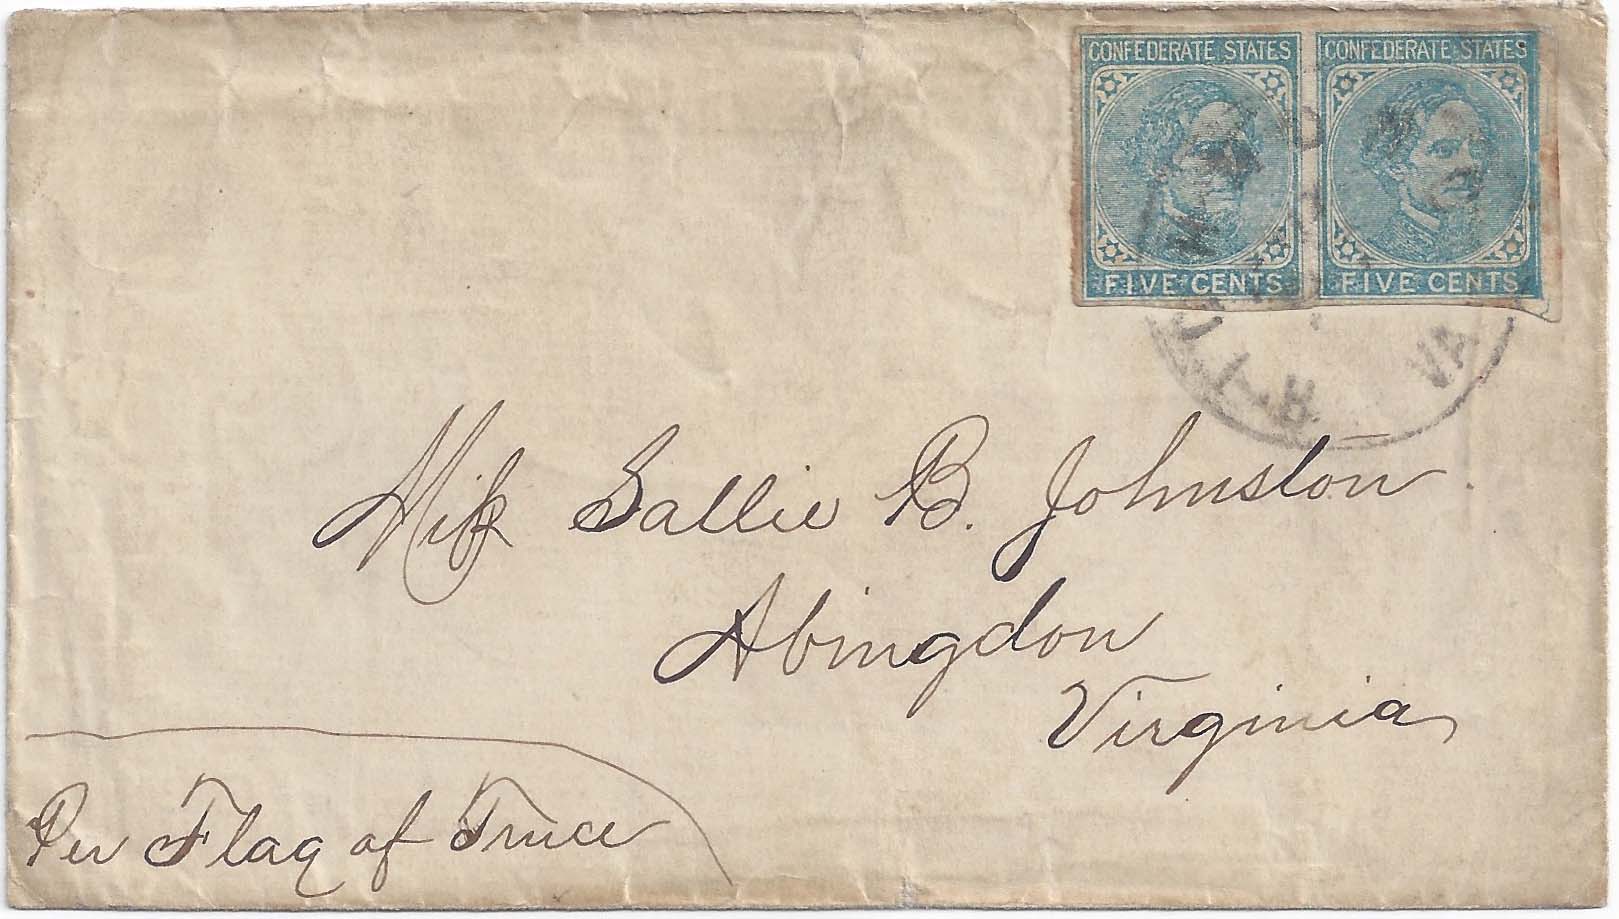 CONFEDERATE STATES
FIVE CENTS
CONFEDERATE STATES
FIVE CENTS
RICHMOND
VA
Miſs Sallie B. Johnston
Abingdon
Virginia
Per Flag of Truce